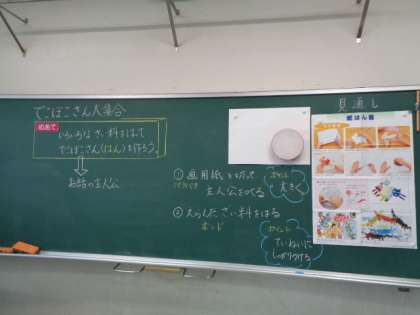 でこぼこさん大集合
めあて
いろいろなざい料をはって
でこぼこさん(はん)を作ろう。
お話の主人公
① 画用紙を切って
主人公をつくる
ポイント
大きく
② えらんだざい料をはる
ボンド
ポイント
ていねいに
しっかりつける
見通し
紙はん画